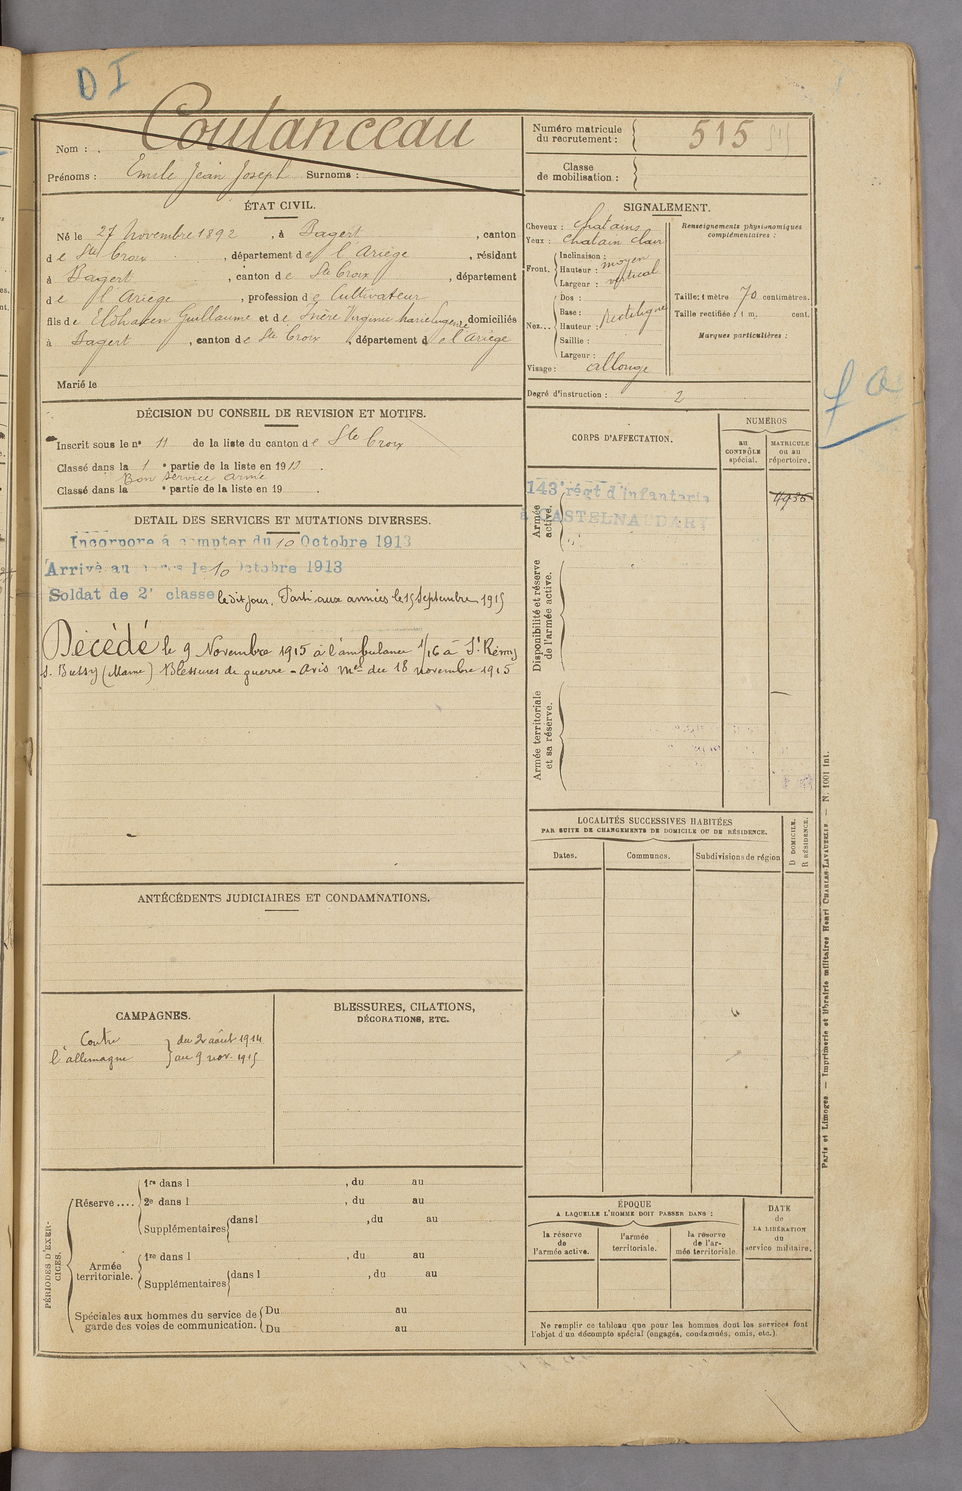 D I
Nom : Coutanceau
Prénoms : Emile Jean Joseph Surnoms :
Numéro matricule du recrutement : 515
Classe de mobilisation :
ÉTAT CIVIL.
Né le 27 Novembre 1892, à Bagert, canton
de Ste Croix, département de l'Ariège, résidant
à Bagert, canton de Ste Croix, département
de l'Ariège, profession de Cultivateur
fils de Guillaume et de Virginie Marie domiciliés
à Bagert, canton de Ste Croix, département de l'Ariège
Marié le
SIGNALEMENT.
Cheveux : Chatains
Yeux : Chatain clair
Front. Inclinaison : moyen
Hauteur : vertical
Largeur :
Nez... Dos :
Base : rectiligne
Hauteur :
Saillie :
Largeur :
Visage : allongé
Renseignements physionomiques
complémentaires :
Taille : 1 mètre 70 centimètres.
Taille rectifiée : 1 m. cent.
Marques particulières :
Degré d'instruction : 2
fa
DÉCISION DU CONSEIL DE REVISION ET MOTIFS.
Inscrit sous le n° 11 de la liste du canton de Ste Croix
Classé dans la 1e partie de la liste en 1913.
Bon service armé
Classé dans la e partie de la liste en 19 .
CORPS D'AFFECTATION.
NUMÉROS
au CONTRÔLE spécial.
MATRICULE ou au répertoire.
Armée active.
143e régt d'infanterie
à CASTELNAUDARY
Disponibilité et réserve de l'armée active.
Armée territoriale et sa réserve.
DETAIL DES SERVICES ET MUTATIONS DIVERSES.
Incorporé à compter du 10 Octobre 1913
Arrivé au corps le 10 Octobre 1913
Soldat de 2e classe le dit jour. Parti aux armées le 15 Septembre 1915
Décédé le 9 Novembre 1915 à l'ambulance 1/16 à St Rémy
s. Bussy (Marne) Blessures de guerre - Avis mel du 18 novembre 1915
LOCALITÉS SUCCESSIVES HABITÉES
PAR SUITE DE CHANGEMENTS DE DOMICILE OU DE RÉSIDENCE.
Dates.
Communes.
Subdivisions de région
D DOMICILE.
R RÉSIDENCE.
ANTÉCÉDENTS JUDICIAIRES ET CONDAMNATIONS.
CAMPAGNES.
Contre du 2 août 1914
l'allemagne au 9 nov. 1915
BLESSURES, CILATIONS,
DÉCORATIONS, ETC.
PÉRIODES D'EXERCICES.
Réserve....
1re dans l , du au
2e dans l , du au
Supplémentaires dans l , du au
Armée territoriale.
1re dans l , du au
Supplémentaires dans l , du au
Spéciales aux hommes du service de garde des voies de communication.
Du au
Du au
ÉPOQUE
A LAQUELLE L'HOMME DOIT PASSER DANS :
la réserve de l'armée active.
l'armée territoriale.
la réserve de l'armée territoriale.
DATE de LA LIBÉRATION du service militaire.
Ne remplir ce tableau que pour les hommes dont les services font
l'objet d'un décompte spécial (engagés, condamnés, omis, etc.).
Paris et Limoges. — Imprimerie et librairie militaires Henri CHARLES-LAVAUZELLE. — N. 1001 int.